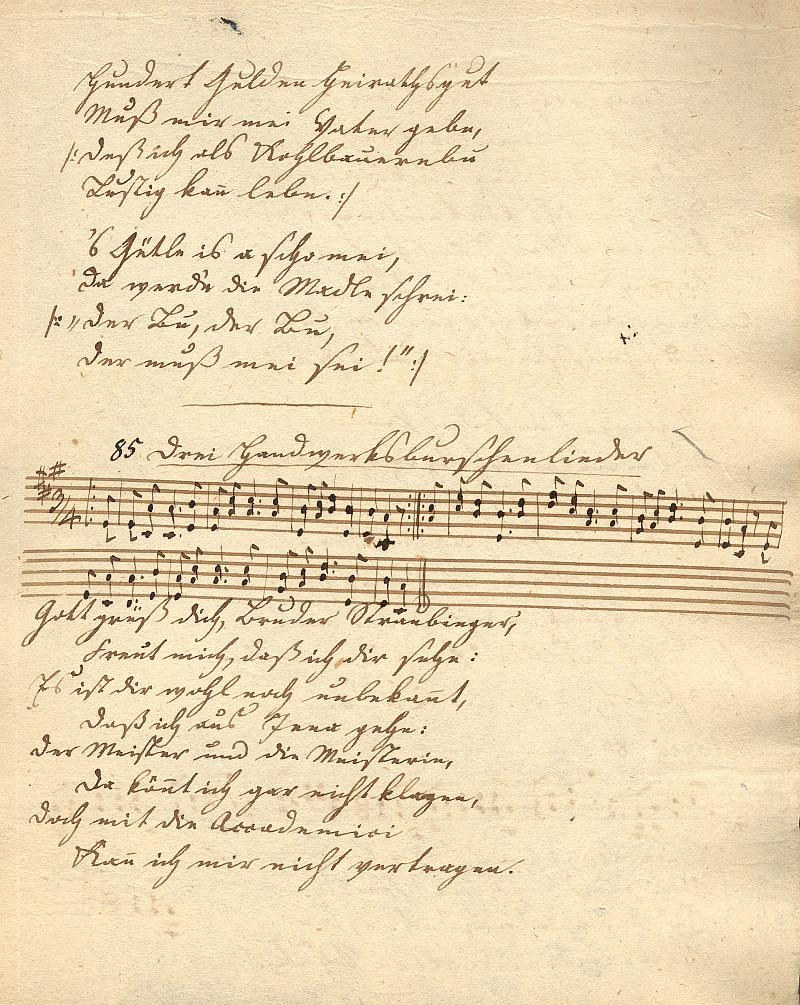 Hundert Gulden Heirathsgut
Muß mir mei Vater gebe,
/: Deß ich als Kohlbauernbu
Lustig kan̄ lebe. :/
's Gütle is a scho mei,
Da werd'n die Madle schrei:
/: „Der Bu, der Bu,
Der muß mei sei!" :/
85 Drei Handwerksburschenlieder
3/4
Gott grüß dich, Bruder Straubinger,
Freut mich, daß ich dir sehe:
Es ist dir wohl noch unbekan̄t,
Daß ich aus Jena gehe:
Der Meister und die Meisterin,
Da kön̄t ich gar nicht klagen,
Doch mit die Accademici
Kan̄ ich mir nicht vertragen.